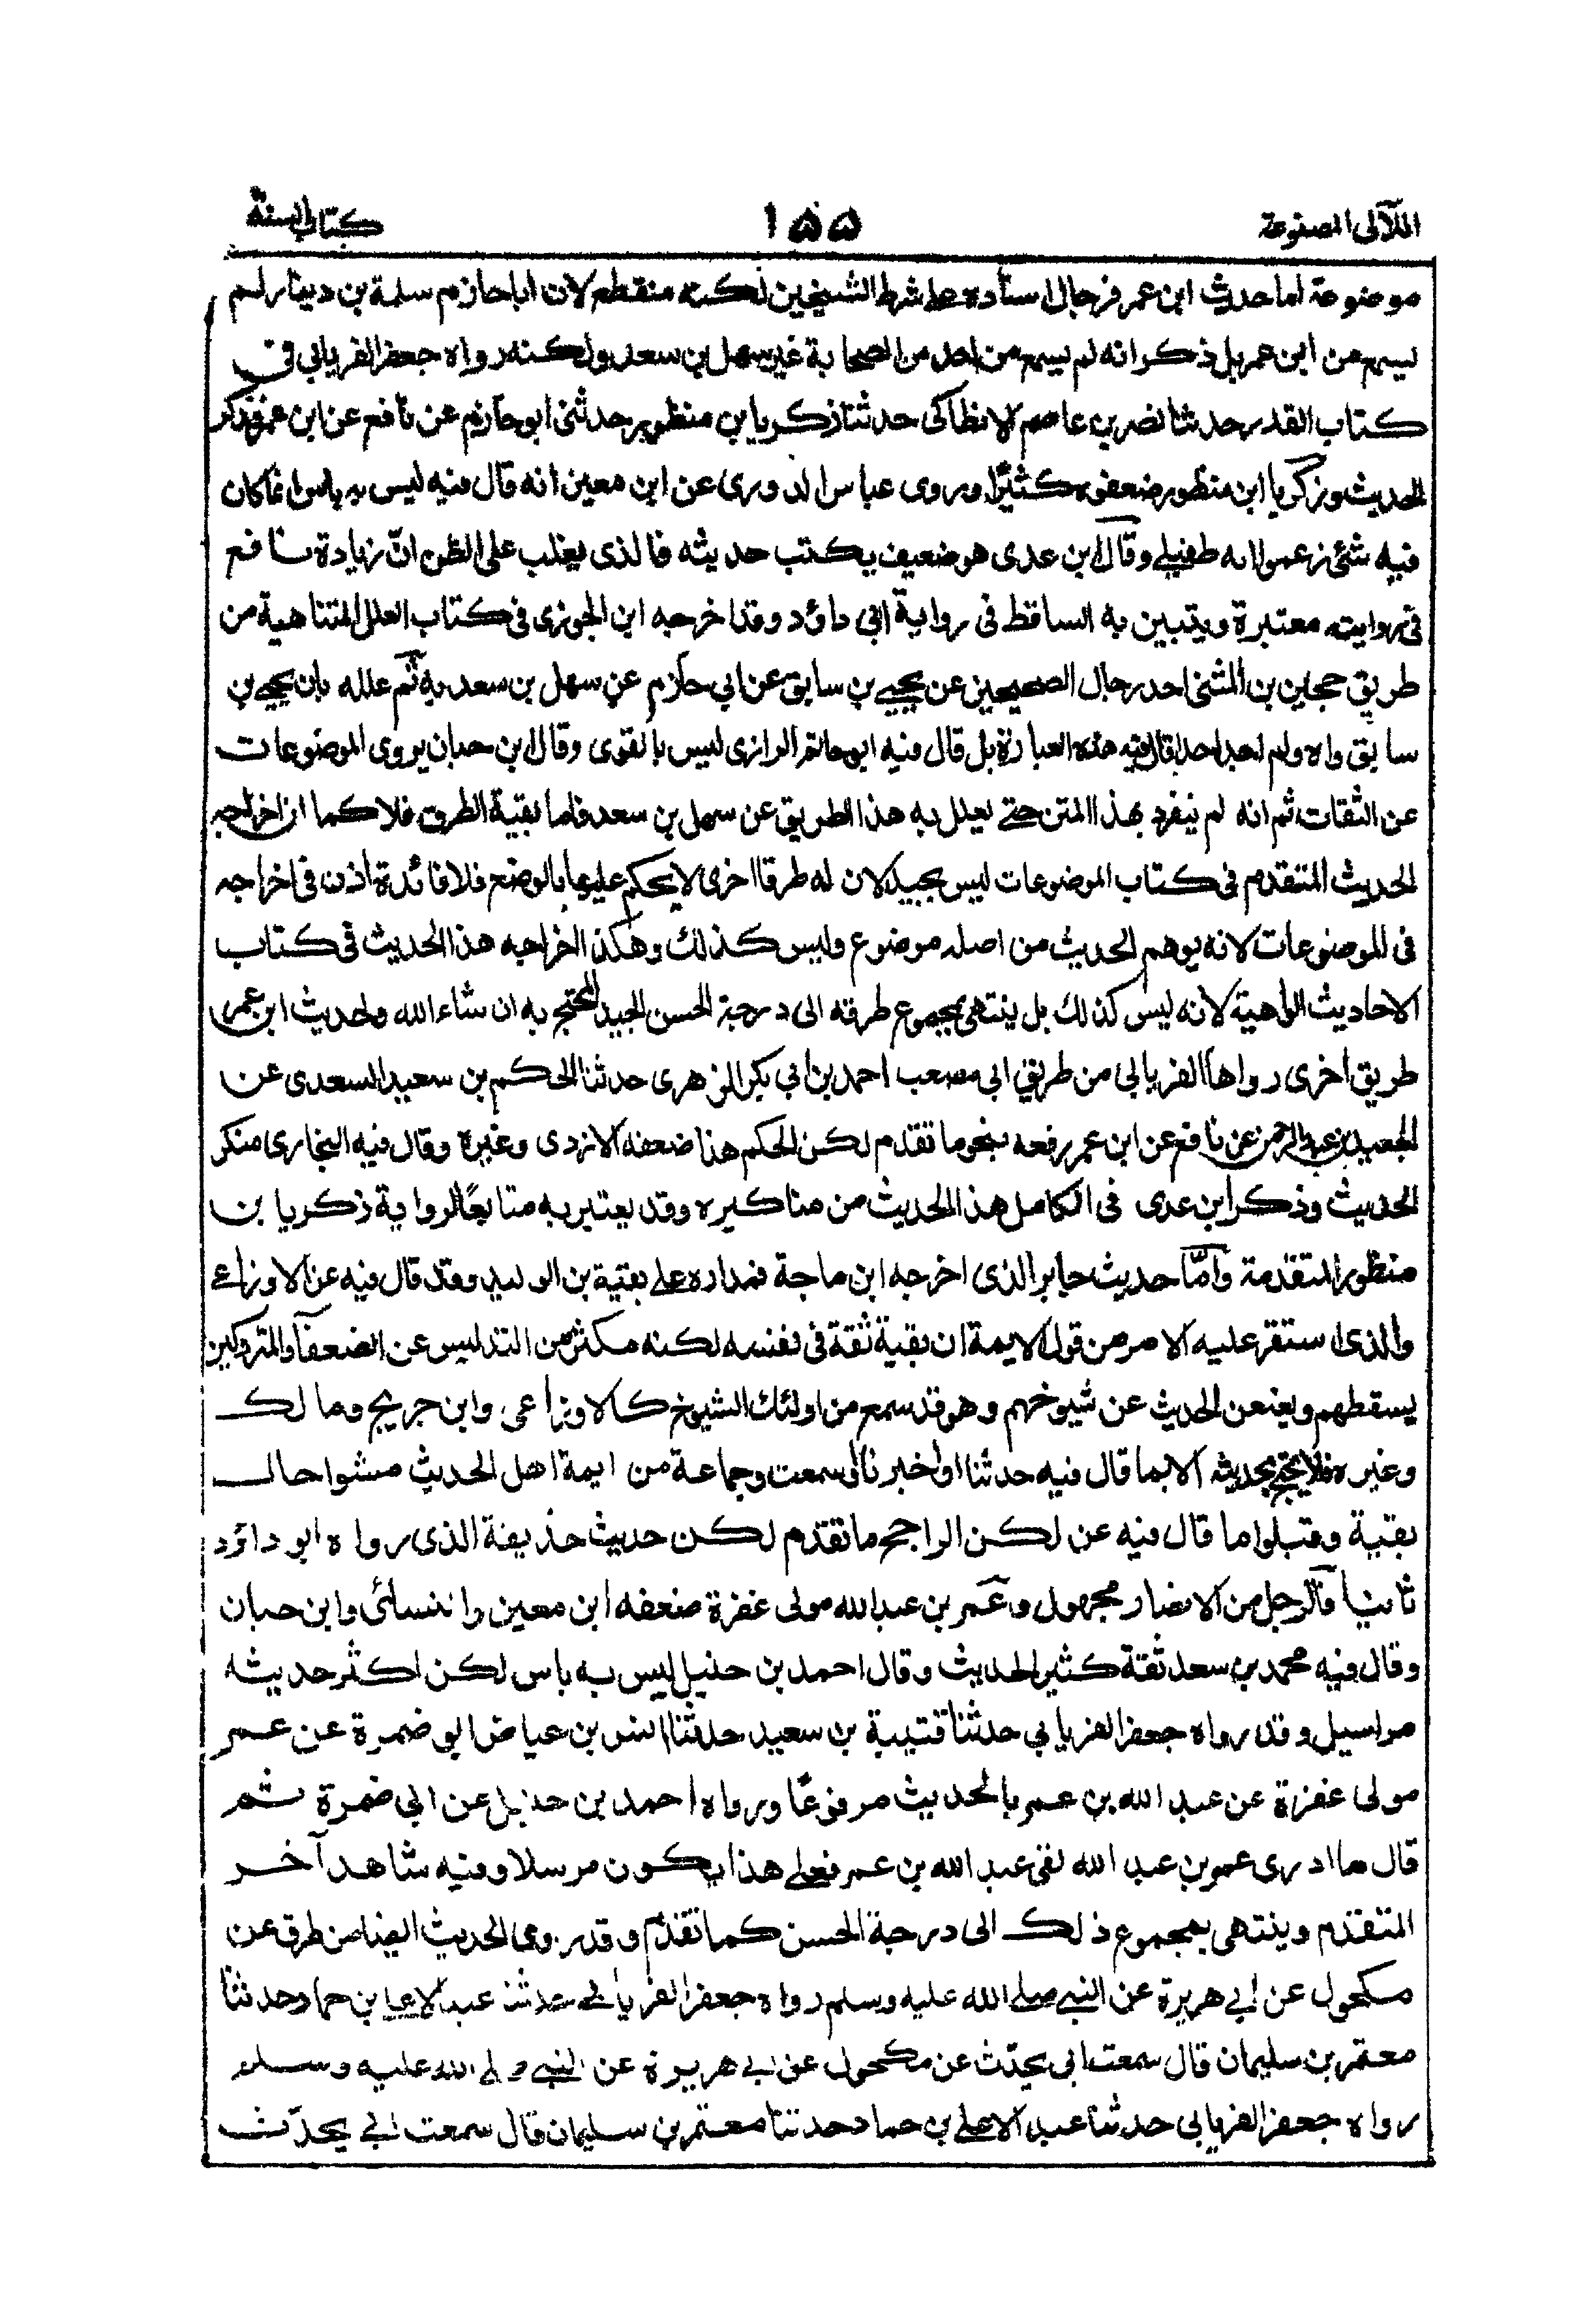 اللآلى المصنوعة ١٥٥ كتاب السنة
موضوعة اما حديث ابن عمر فرجال اسناده على شرط الشيخين لكنه منقطع لان ابا حازم سلمة بن دينار لم
يسمع من ابن عمر بل ذكر انه لم يسمع من احد من الصحابة غير سهل بن سعد ولكنه رواه جعفر الفريابي في
كتاب القدر حدثنا نصر بن عاصم الانطاكي حدثنا زكريا بن منظور حدثنى ابو حازم عن نافع عن ابن عمر فذكر
الحديث وزكريا ابن منظور ضعفوه كثيرًا وروى عباس الدورى عن ابن معين انه قال فيه ليس به باس انما كان
فيه شئ زعموا انه طفيلي وقال ابن عدى هو ضعيف يكتب حديثه فالذى يغلب على الظن انّ زيادة نافع
في روايته معتبرة ويتبين به الساقط فى رواية ابي داؤد وقد اخرجه ابن الجوزى فى كتاب العلل المتناهية من
طريق حجين بن المثنى احد رجال الصحيحين عن يحيى بن سابق عن ابي حازم عن سهل بن سعد به ثم علله بان يحيى بن
سابق واه ولم اجد احدا قال فيه هذه العبارة بل قال فيه ابو حاتم الرازى ليس بالقوى وقال ابن حبان يروى الموضوعات
عن الثقات ثم انه لم ينفرد بهذا المتن حتى يعلل به هذا الطريق عن سهل بن سعد فاما بقية الطرق فلا كما ان اخراجه
الحديث المتقدم فى كتاب الموضوعات ليس بجيد لان له طرقا اخرى لا يحكم عليها بالوضع فلا فائدة اذن فى اخراجه
فى الموضوعات لانه يوهم الحديث من اصله موضوع وليس كذلك وهكذا اخراجه هذا الحديث فى كتاب
الاحاديث الواهية لانه ليس كذلك بل ينتهى بمجموع طرقه الى درجة الحسن الجيد المحتج به ان شاء الله ولحديث ابن عمر
طريق اخرى رواها الفريابي من طريق ابي مصعب احمد بن ابي بكر الزهرى حدثنا الحكم بن سعيد السعدى عن
الجعيد بن عبد الرحمن عن نافع عن ابن عمر رفعه بنحو ما تقدم لكن الحكم هذا ضعفه الازدى وغيره وقال فيه البخارى منكر
الحديث وذكر ابن عدى فى الكامل هذا الحديث من مناكيره وقد يعتبر به متابعًا لرواية زكريا بن
منظور المتقدمة وامّا حديث جابر الذى اخرجه ابن ماجة فمداره على بقية بن الوليد وقد قال فيه عن الاوزاعى
والذى استقر عليه الامر من قول الايمة ان بقية ثقة فى نفسه لكنه مكثر من التدليس عن الضعفاء والمتروكين
يسقطهم ويعنعن الحديث عن شيوخهم وهو قد سمع من اولئك الشيوخ كالاوزاعى وابن جريج ومالك
وغيره فلا يحتج بحديثه الا بما قال فيه حدثنا او اخبرنا او سمعت وجماعة من ايمة اهل الحديث مشوا حال
بقية وقبلوا ما قال فيه عن لكن الراجح ما تقدم لكن حديث حذيفة الذى رواه ابو داؤد
ثانيا فالرجل من الانصار مجهول وعمر بن عبد الله مولى غفرة ضعفه ابن معين والنسائى وابن حبان
وقال فيه محمد بن سعد ثقة كثير الحديث وقال احمد بن حنبل ليس به باس لكن اكثر حديثه
مراسيل وقد رواه جعفر الفريابي حدثنا قتيبة بن سعيد حدثنا انس بن عياض ابو ضمرة عن عمر
مولى غفرة عن عبد الله بن عمر بالحديث مرفوعًا ورواه احمد بن حنبل عن ابي ضمرة ثم
قال ما ادرى عمر بن عبد الله لقى عبد الله بن عمر فعلى هذا يكون مرسلا وفيه شاهد آخر
المتقدم وينتهى بمجموع ذلك الى درجة الحسن كما تقدم وقد روى الحديث ايضا من طرق عن
مكحول عن ابي هريرة عن النبي صلى الله عليه وسلم رواه جعفر الفريابي حدثنا عبد الاعلى بن حماد حدثنا
معتمر بن سليمان قال سمعت ابي يحدّث عن مكحول عن ابي هريرة عن النبي صلى الله عليه وسلم
رواه جعفر الفريابي حدثنا عبد الاعلى بن حماد حدثنا معتمر بن سليمان قال سمعت ابي يحدّث